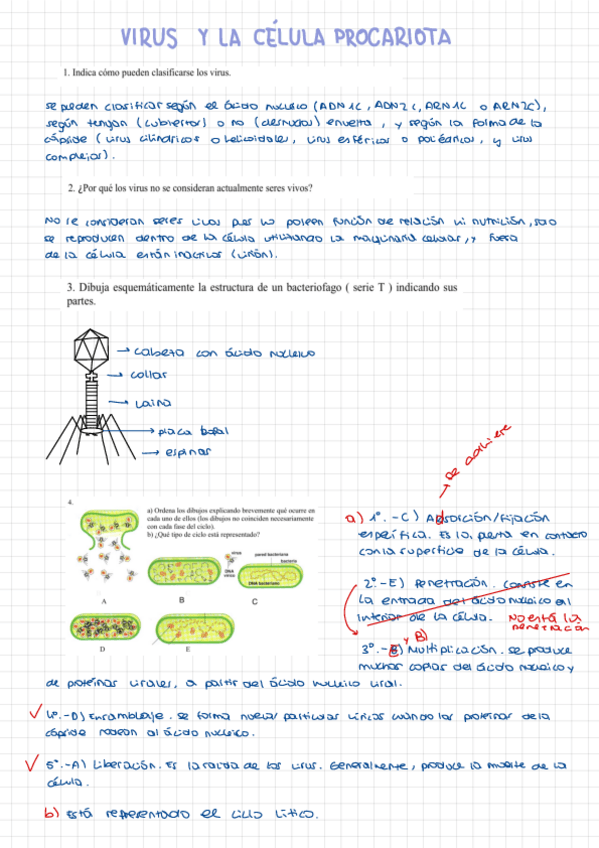 VIRUS Y LA CÉLULA PROCARIOTA
1. Indica cómo pueden clasificarse los virus.
se pueden clasificar según el ácido nucleico (ADN1C, ADN2C, ARN1C o ARN2C),
según tengan (cubiertos) o no (desnudos) envuelta, y según la forma de la
cápside (virus cilíndricos o helicoidales, virus esféricos o poliédricos, y virus
complejos).
2. ¿Por qué los virus no se consideran actualmente seres vivos?
No se consideran seres vivos pues no poseen función de relación ni nutrición, solo
se reproducen dentro de la célula utilizando la maquinaria celular, y fuera
de la célula están inactivos (virión).
3. Dibuja esquemáticamente la estructura de un bacteriofago ( serie T ) indicando sus
partes.
→ cabeza con ácido nucleico
→ collar
→ vaina
→ placa basal
→ espinas
4.
a) Ordena los dibujos explicando brevemente qué ocurre en
cada uno de ellos (los dibujos no coinciden necesariamente
con cada fase del ciclo).
b) ¿Qué tipo de ciclo está representado?
virus
DNA
virus
pared bacteriana
bacteria
DNA bacteriano
A
B
C
D
E
→ se adhiere
a) 1º.-C) Adsorción/Fijación
específica. Es la puesta en contacto
con la superficie de la célula.
2º.-E) Penetración. Consiste en
la entrada del ácido nucleico al
interior de la célula. No está la
penetración
y B)
3º.- E) Multiplicación. se produce
muchas copias del ácido nucleico y
de proteínas virales, a partir del ácido nucleico viral.
4º.-D) Ensamblaje. se forma nuevas partículas víricas cuando las proteínas de la
cápside rodean al ácido nucleico.
5º.-A) Liberación. Es la salida de los virus. Generalmente, produce la muerte de la
célula.
b) Está representado el ciclo lítico.